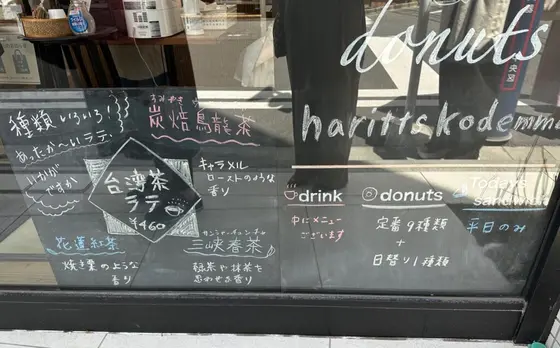 donuts
haritts kodemma
種類いろいろ!
あったか〜いラテ、
いかが
ですか
すみやき
炭焙烏龍茶
キャラメル
ローストのような
香り
台湾茶
ラテ
¥460
花蓮紅茶
焼き栗のような
香り
サンシャーチュンチャ
三峡春茶
緑茶や抹茶を
思わせる香り
drink
中にメニュー
ございます
donuts
定番9種類
+
日替り1種類
Today's
sandwich
平日のみ